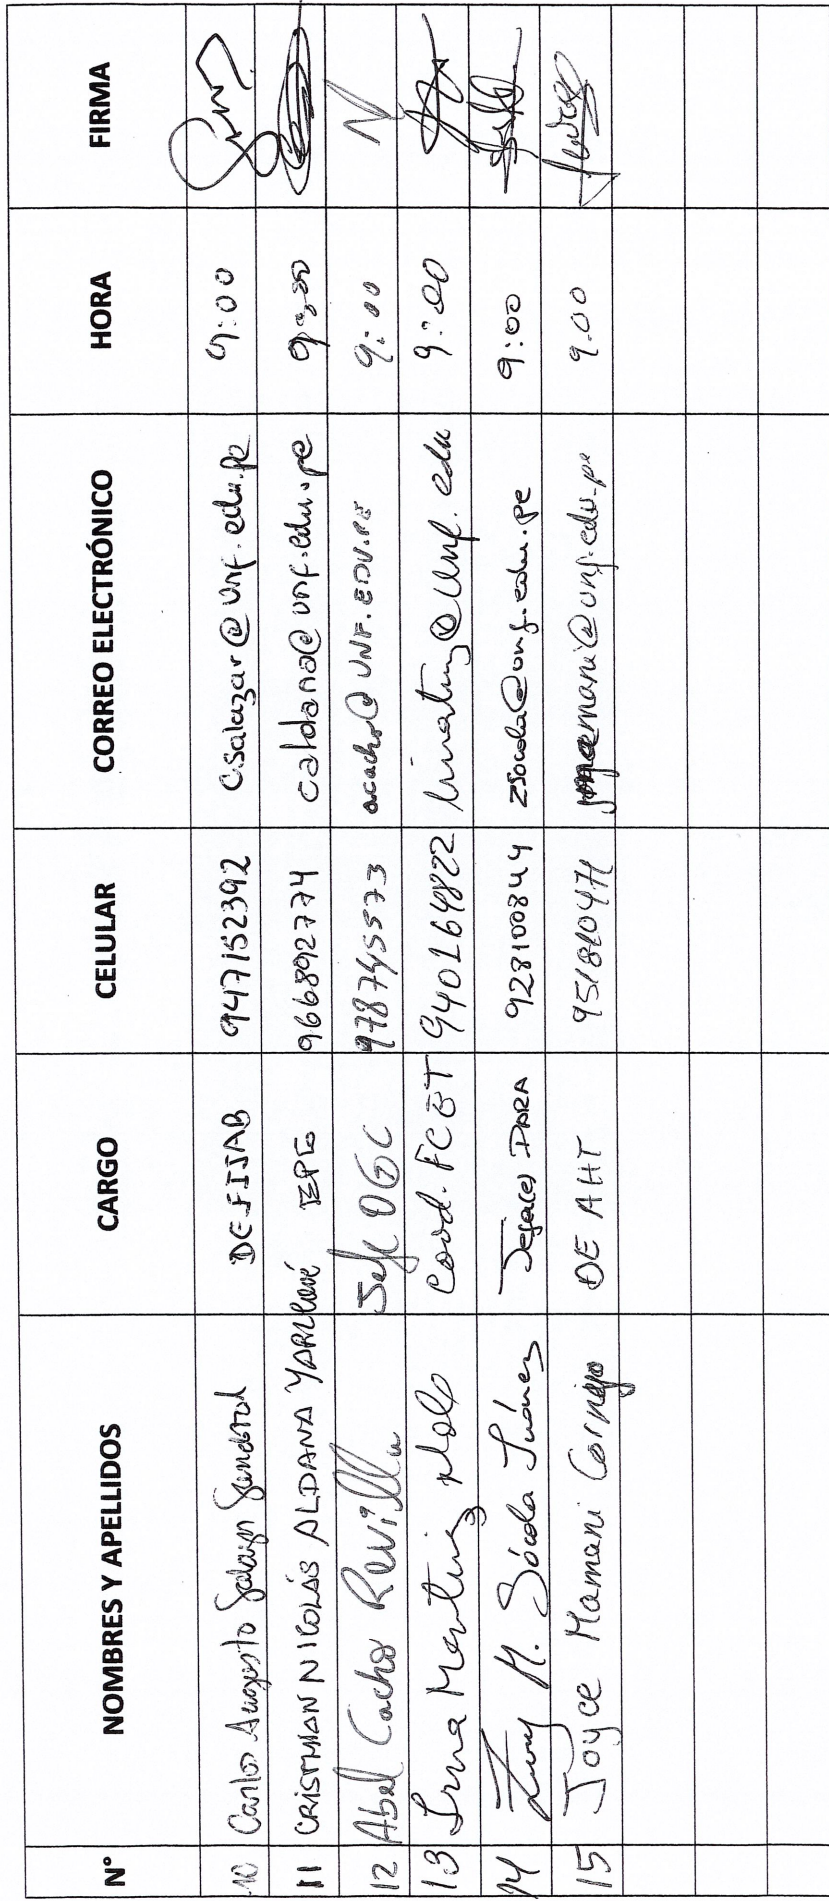 N° NOMBRES Y APELLIDOS CARGO CELULAR CORREO ELECTRÓNICO HORA FIRMA
10 Carlos Augusto Salazar Sandoval DEFIIAB 947152392 csalazar@unf.edu.pe 9:00
11 CRISTHIAN NICOLÁS ALDANA YARLEQUÉ EPG 966892774 caldana@unf.edu.pe
12 Abel Cacho Revilla Jefe OGC 978745573 acacho@UNF.EDU.PE 9:00
13 Irma Martinez Coord. FCET 940164822 9:00
14 M. Sócola Juárez Jefa(e) DARA 928100844 zsocola@unf.edu.pe 9:00
15 Joyce Mamani Cornejo DE AHT @unf.edu.pe 9.00